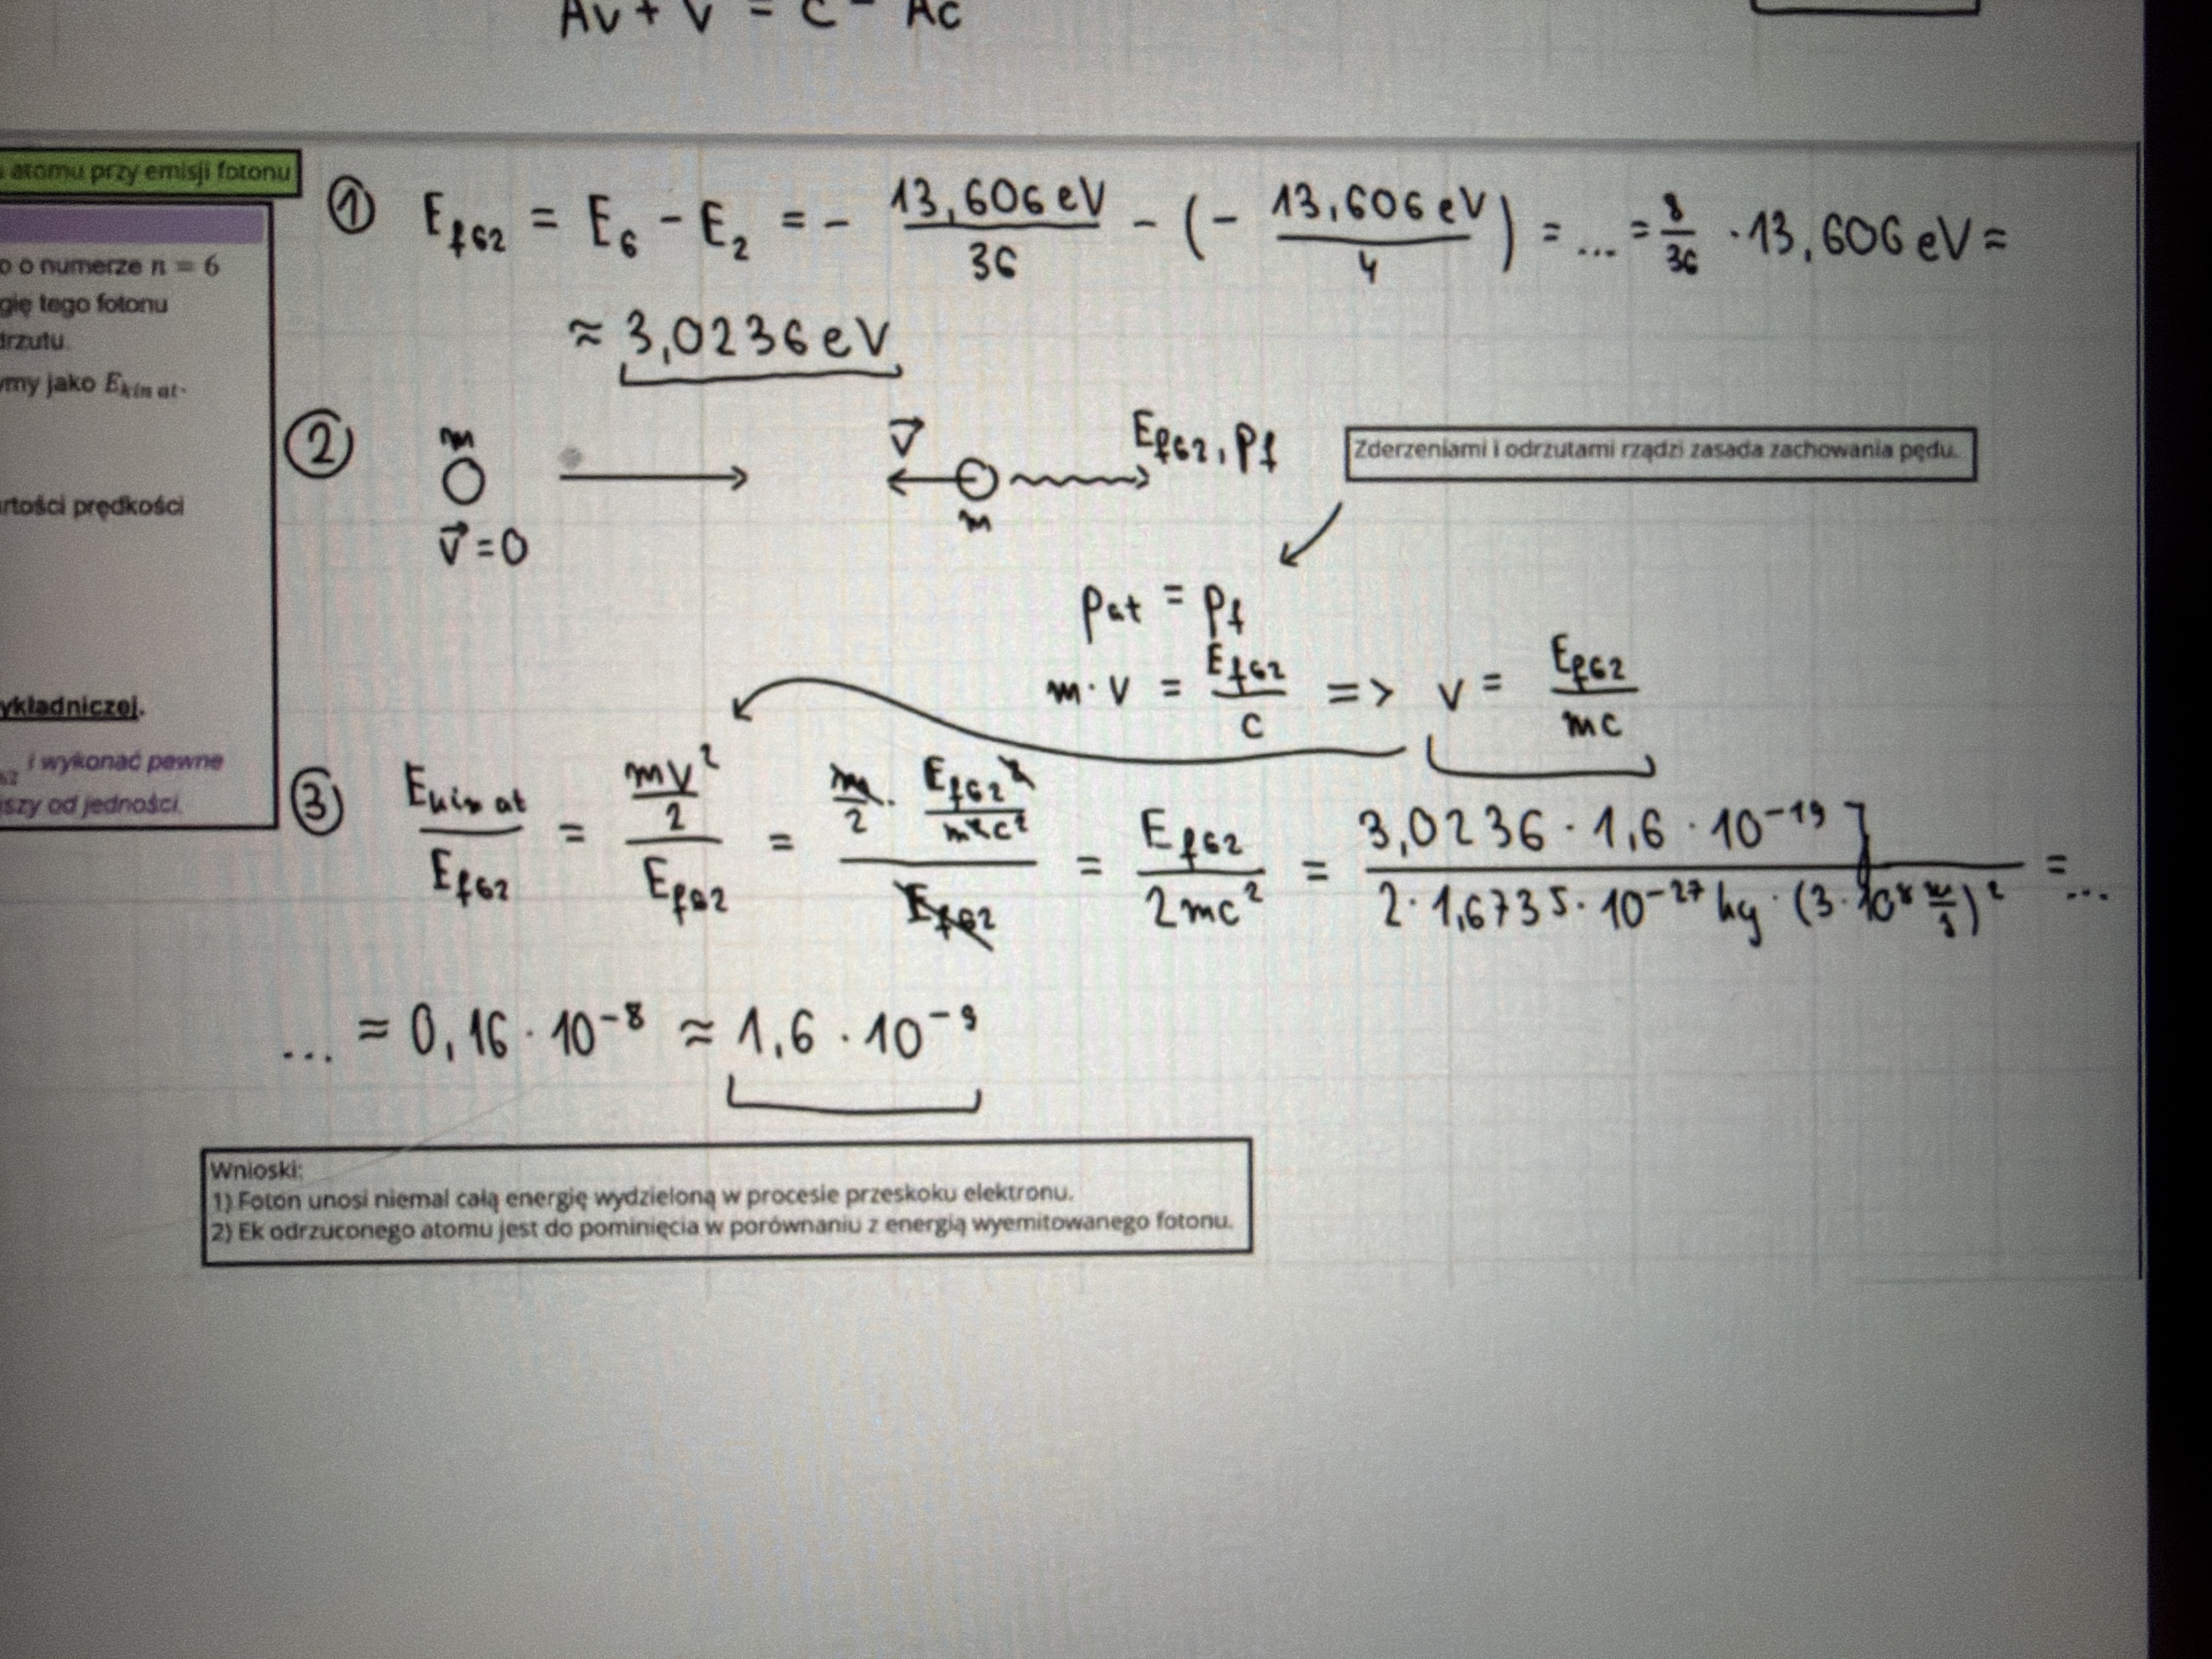 Av + v = c - Ac
atomu przy emisji fotonu
o o numerze n = 6
gię tego fotonu
drzutu.
ymy jako E_kin at.
rtości prędkości
ykładniczej.
62 i wykonać pewne
jszy od jedności.
① E_f62 = E_6 - E_2 = - 13,606 eV / 36 - (- 13,606 eV / 4) = ... = 8/36 · 13,606 eV ≈
≈ 3,0236 eV
② m v⃗ = 0 → v⃗ m E_f62, p_f
Zderzeniami i odrzutami rządzi zasada zachowania pędu.
p_at = p_f
m · v = E_f62 / c => v = E_f62 / mc
③ E_kin at / E_f62 = (mv² / 2) / E_f62 = (m/2 · E_f62² / m²c²) / E_f62 = E_f62 / 2mc² = 3,0236 · 1,6 · 10⁻¹⁹ J / 2 · 1,6735 · 10⁻²⁷ kg · (3 · 10⁸ m/s)² = ...
... = 0,16 · 10⁻⁸ ≈ 1,6 · 10⁻⁹
Wnioski:
1) Foton unosi niemal całą energię wydzieloną w procesie przeskoku elektronu.
2) Ek odrzuconego atomu jest do pominięcia w porównaniu z energią wyemitowanego fotonu.